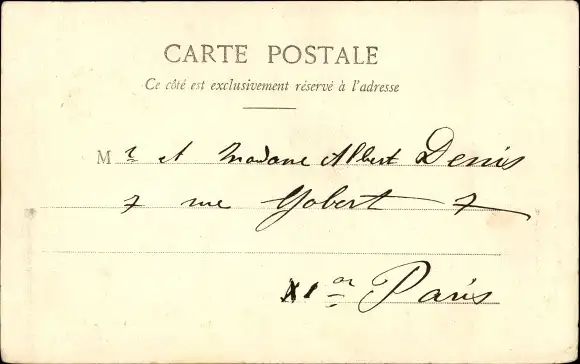 CARTE POSTALE
Ce côté est exclusivement réservé à l'adresse
Mr et Madame Albert Denis
7 rue Gobert 7
XIar Paris